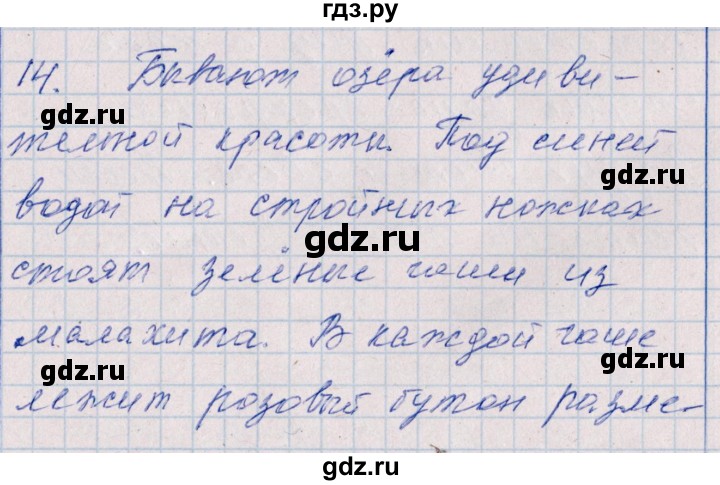 гдз.ру
14. Бывают озёра удиви-
gdz.ru
gdz.ru
тельной красоты. Под синей
gdz.ru
водой на стройных ножках
gdz.ru
стоят зелёные чаши из
малахита. В каждой чаше
gdz.ru
gdz.ru
лежит розовый бутон разме-
gdz.ru